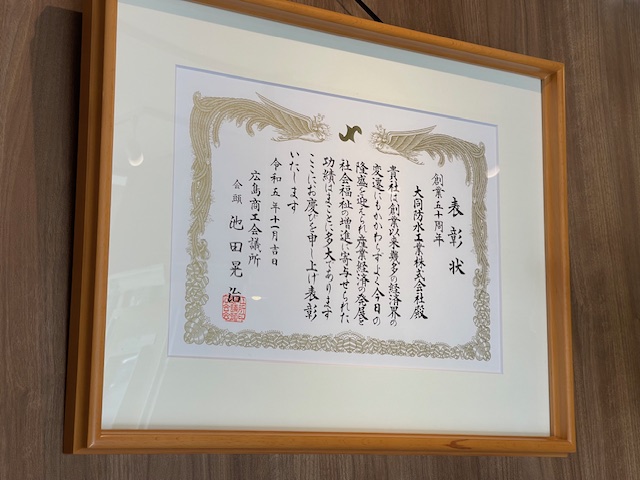 表彰状
創業五十周年
大同防水工業株式会社殿
貴社は創業以来幾多の経済界の
変遷にもかかわらずよく今日の
隆盛を迎えられ産業経済の発展と
社会福祉の増進に寄与せられた
功績はまことに多大であります
ここにお慶びを申し上げ表彰
いたします
令和五年十一月吉日
広島商工会議所
会頭 池田晃治